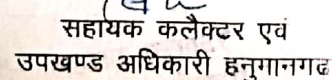 सहायक कलैक्टर एवं
उपखण्ड अधिकारी हनुमानगढ़